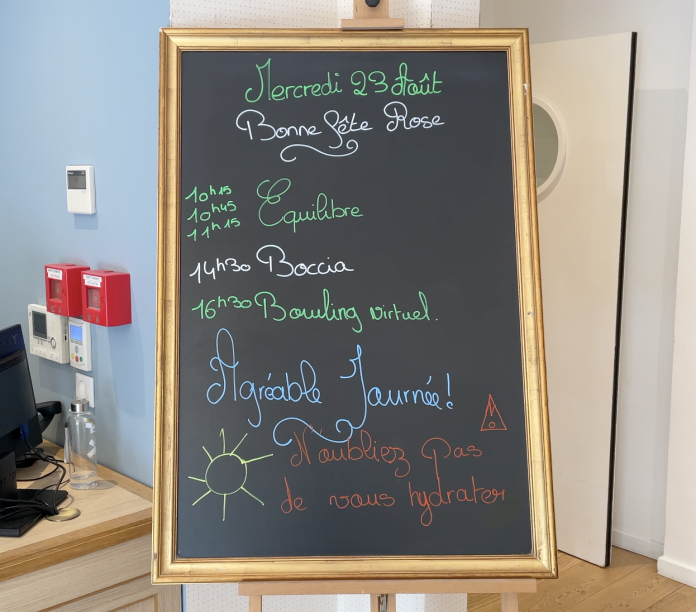 Mercredi 23 Août
Bonne fête Rose
10h15
10h45 Equilibre
11h15
14h30 Boccia
16h30 Bowling virtuel.
Agréable Journée!
N'oubliez Pas
de vous hydrater